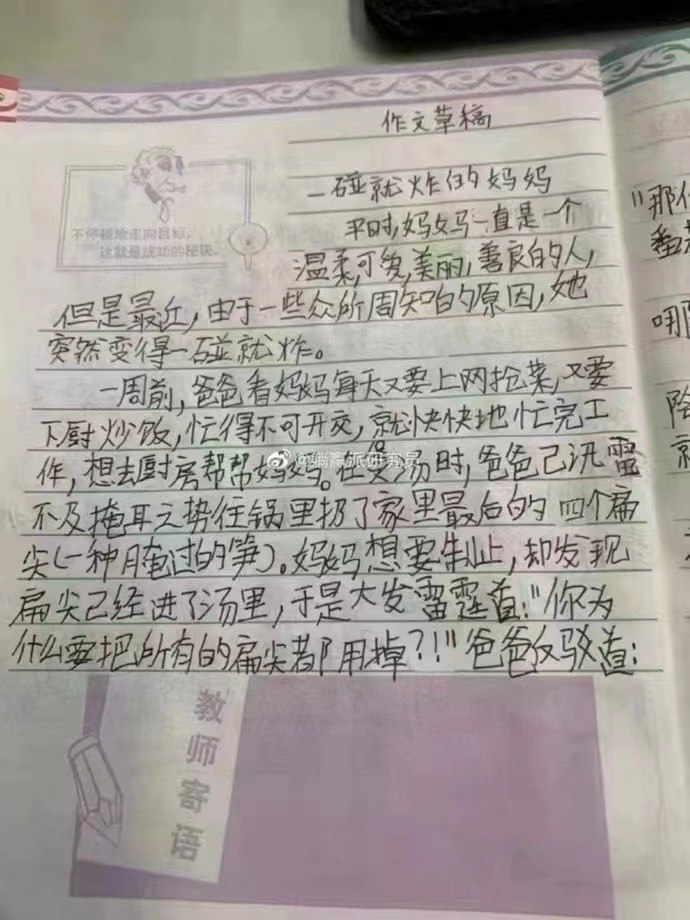 作文草稿
一碰就炸的妈妈
不停顿地走向目标，
这就是成功的秘诀。
平时，妈妈一直是一个
温柔，可爱，美丽，善良的人，
但是最近，由于一些众所周知的原因，她
突然变得一碰就炸。
一周前，爸爸看妈妈每天又要上网抢菜，又要
下厨炒饭，忙得不可开交，就快快地忙完工
作，想去厨房帮帮妈妈。在煲汤时，爸爸已汛雷
不及掩耳之势往锅里扔了家里最后的四个扁
尖（一种腌过的笋）。妈妈想要制止，却发现
扁尖已经进了汤里，于是大发雷霆道："你为
什么要把所有的扁尖都用掉？！"爸爸反驳道：
教师寄语
"那
番
哪
险
就